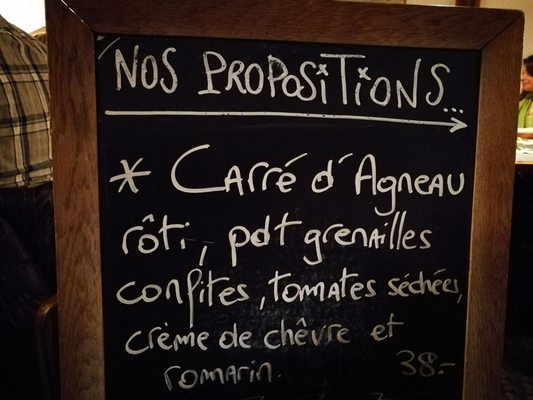 NOS PROPOSITIONS...
* Carré d'Agneau
rôti, pdt grenailles
confites, tomates séchées,
crème de chêvre et
romarin. 38.-